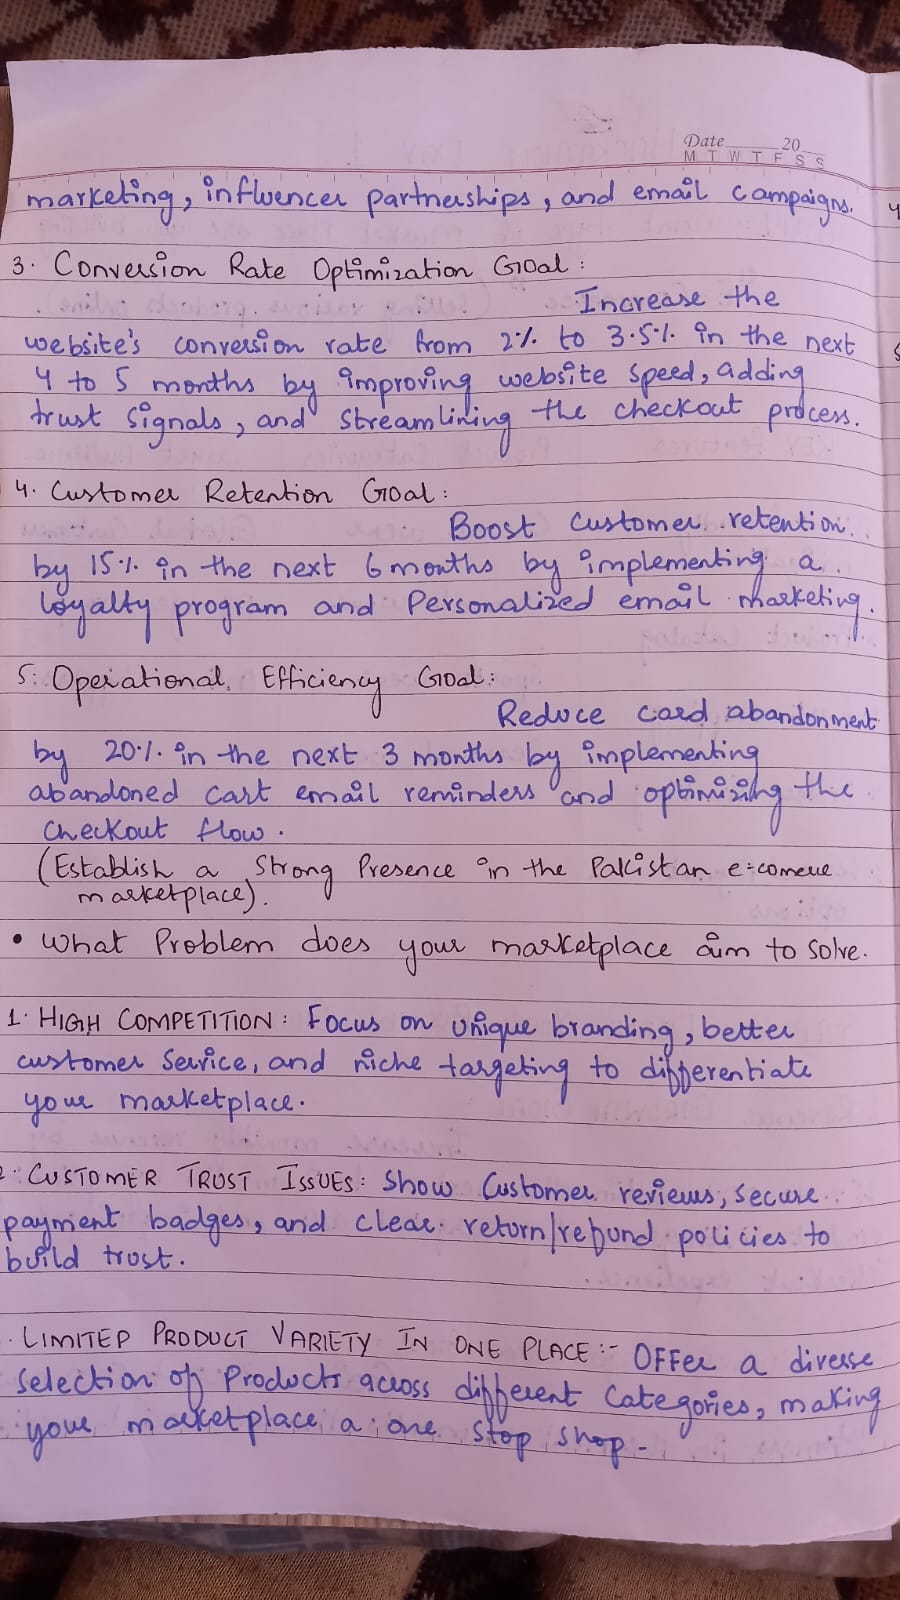 Date 20
M T W T F S S
marketing, influencer partnerships, and email campaigns.
3. Conversion Rate Optimization Goal:
Increase the
website's conversion rate from 2% to 3.5% in the next
4 to 5 months by improving website speed, adding
trust signals, and streamlining the checkout process.
4. Customer Retention Goal:
Boost customer retention
by 15% in the next 6 months by implementing a
loyalty program and Personalized email marketing.
5. Operational Efficiency Goal:
Reduce card abandonment
by 20% in the next 3 months by implementing
abandoned cart email reminders and optimizing the
checkout flow.
(Establish a Strong Presence in the Pakistan
marketplace).
• What Problem does your marketplace aim to solve.
1. HIGH COMPETITION: Focus on unique branding, better
customer Service, and niche targeting to differentiate
your marketplace.
CUSTOMER TRUST ISSUES: Show Customer reviews, secure
payment badges, and clear return/refund policies to
build trust.
LIMITED PRODUCT VARIETY IN ONE PLACE:- Offer a diverse
selection of Products across different Categories, making
your marketplace a one stop shop.